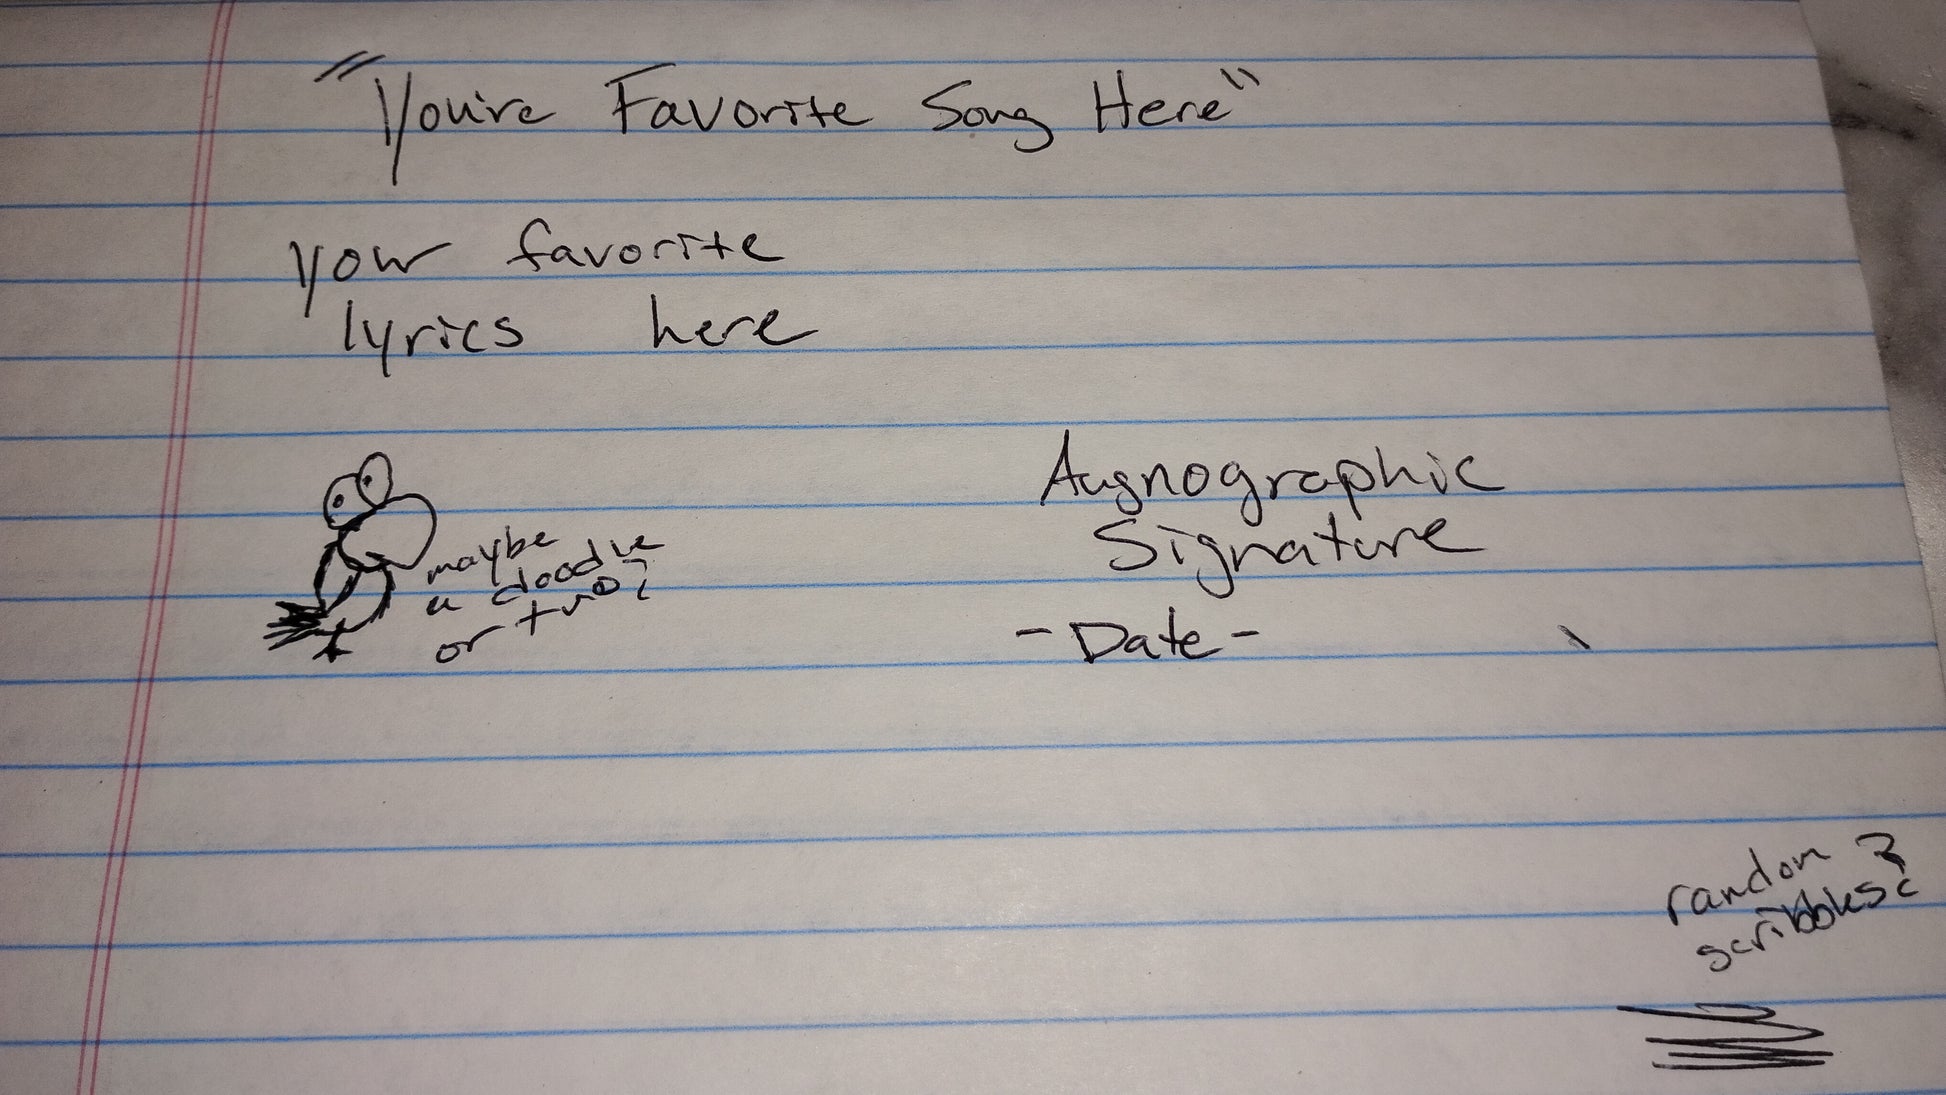 "You're Favorite Song Here"
your favorite
lyrics here
maybe
a doodle
or two?
Augnographic
Signature
- Date -
random
scribbles?